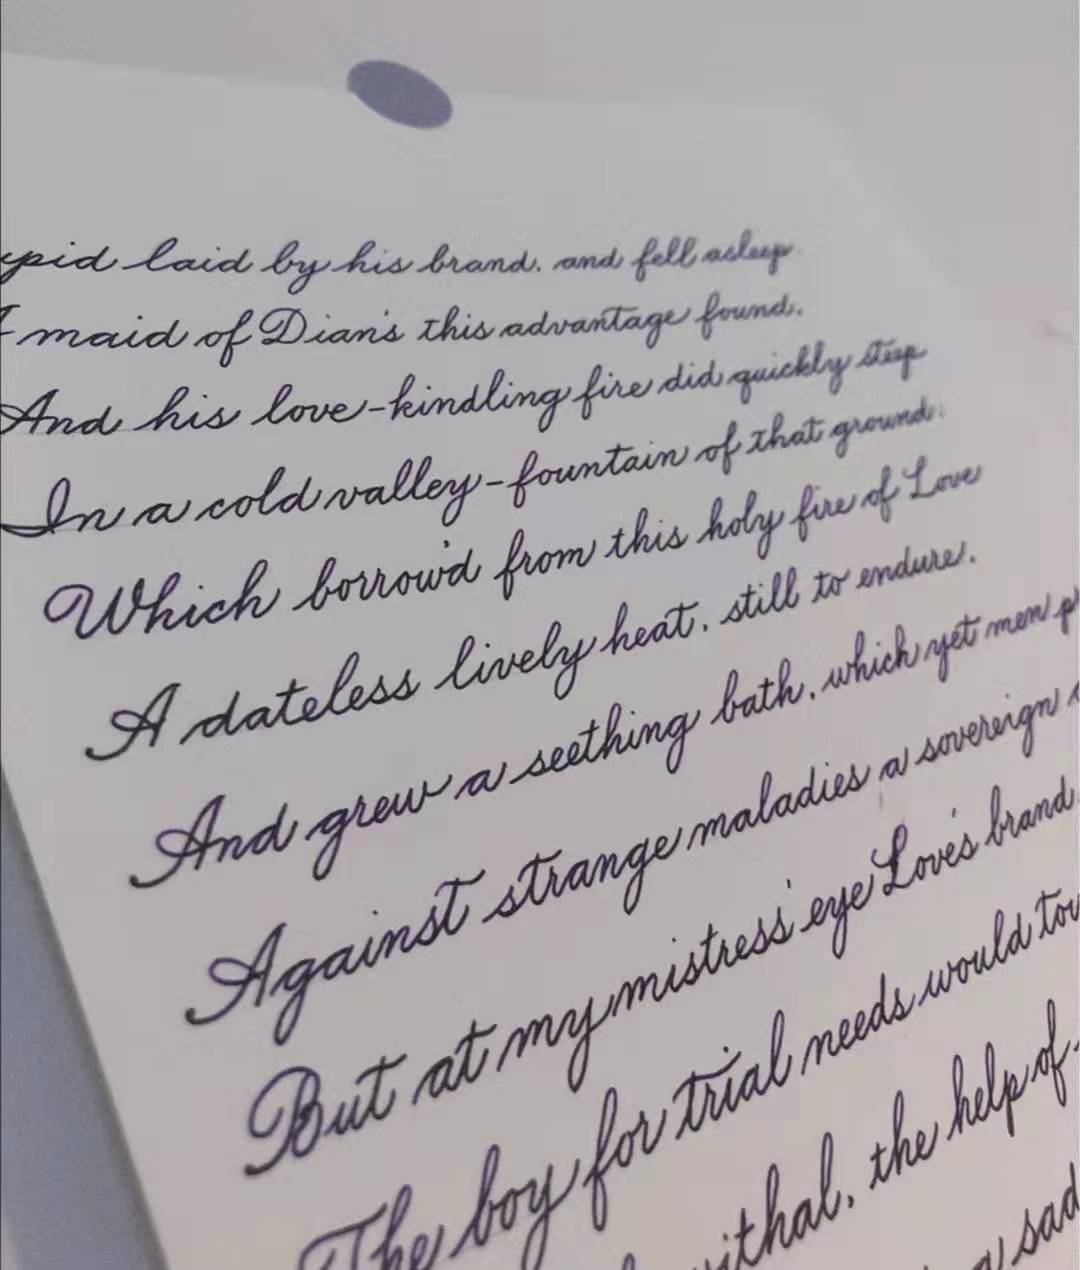 ypid laid by his brand. and fell asleep.
maid of Dian's this advantage found.
And his love-kindling fire did quickly steep
In a cold valley-fountain of that ground:
Which borrow'd from this holy fire of Love
A dateless lively heat. still to endure.
And grew a seething bath. which yet men p
Against strange maladies a sovereign
But at my mistress' eye Love's brand
The boy for trial needs would tou
withal. the help of
sad